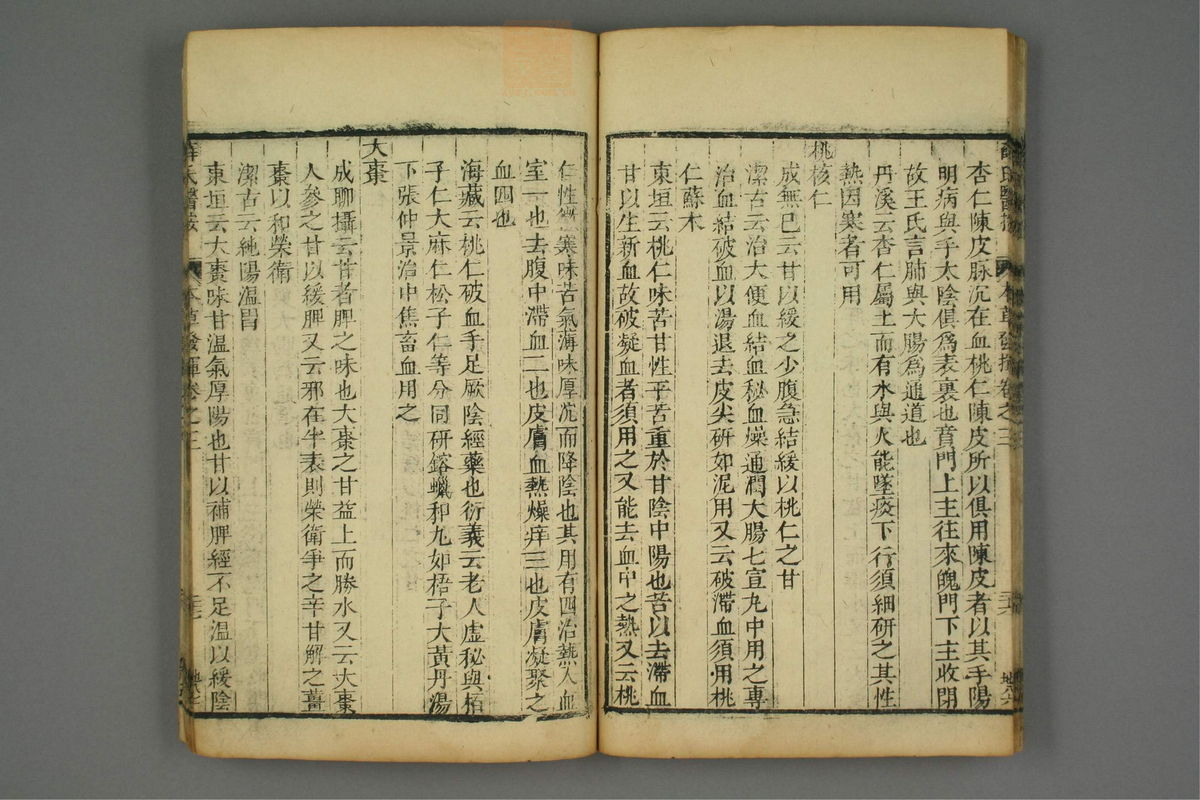 杏仁陳皮脉沉在血桃仁陳皮所以俱用陳皮者以其手陽
明病與手太陰俱爲表裏也賁門上主往來魄門下主收閉
故王氏言肺與大腸爲通道也
丹溪云杏仁屬土而有水與火能墜痰下行須細研之其性
熱因寒者可用
桃核仁
成無已云甘以緩之少腹急結緩以桃仁之甘
潔古云治大便血結血秘血燥通潤大腸七宣丸中用之專
治血結破血以湯退去皮尖研如泥用又云破滯血須用桃
仁蘇木
東垣云桃仁味苦甘性平苦重於甘陰中陽也苦以去滯血
甘以生新血故破凝血者須用之又能去血中之熱又云桃
仁性寒味苦氣薄味厚沉而降陰也其用有四治熱入血
室一也去腹中滯血二也皮膚血熱燥痒三也皮膚凝聚之
血四也
海藏云桃仁破血手足厥陰經藥也衍義云老人虛秘與栢
子仁大麻仁松子仁等分同研鎔蠟和丸如梧子大黃丹湯
下張仲景治中焦畜血用之
大棗
成聊攝云甘者脾之味也大棗之甘益上而勝水又云大棗
人參之甘以緩脾又云邪在半表則榮衛爭之辛甘解之薑
棗以和榮衛
潔古云純陽溫胃
東垣云大棗味甘溫氣厚陽也甘以補脾經不足溫以緩陰
薛氏醫按 本草發揮卷之三